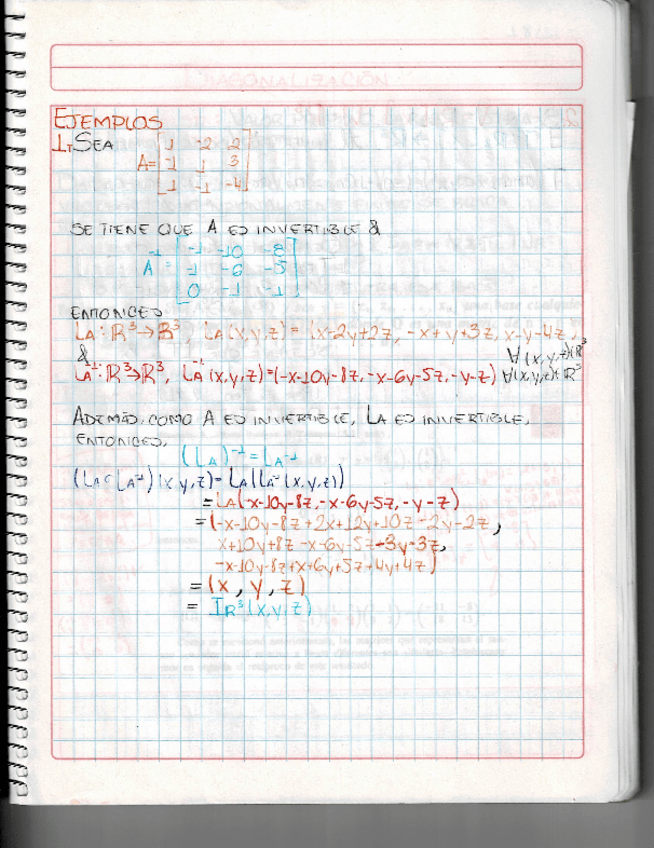 EJEMPLOS
1. SEA
A = [ 1 -2 2
-1 1 3
1 -1 -4 ]
SE TIENE QUE A ES INVERTIBLE &
A⁻¹ = [ -1 -10 -8
-1 -6 -5
0 -1 -1 ]
ENTONCES
LA: ℝ³→ℝ³, LA(x,y,z) = (x-2y+2z, -x+y+3z, x-y-4z),
& ∀(x,y,z)∈ℝ³
LA⁻¹: ℝ³→ℝ³, LA⁻¹(x,y,z)=(-x-10y-8z, -x-6y-5z, -y-z) ∀(x,y,z)∈ℝ³
ADEMÁS, COMO A ES INVERTIBLE, LA ES INVERTIBLE,
ENTONCES,
(LA)⁻¹ = LA⁻¹
(LA∘LA⁻¹)(x,y,z) = LA(LA⁻¹(x,y,z))
= LA(-x-10y-8z, -x-6y-5z, -y-z)
= (-x-10y-8z+2x+12y+10z-2y-2z,
x+10y+8z-x-6y-5z-3y-3z,
-x-10y-8z+x+6y+5z+4y+4z)
= (x, y, z)
= Iℝ³(x,y,z)